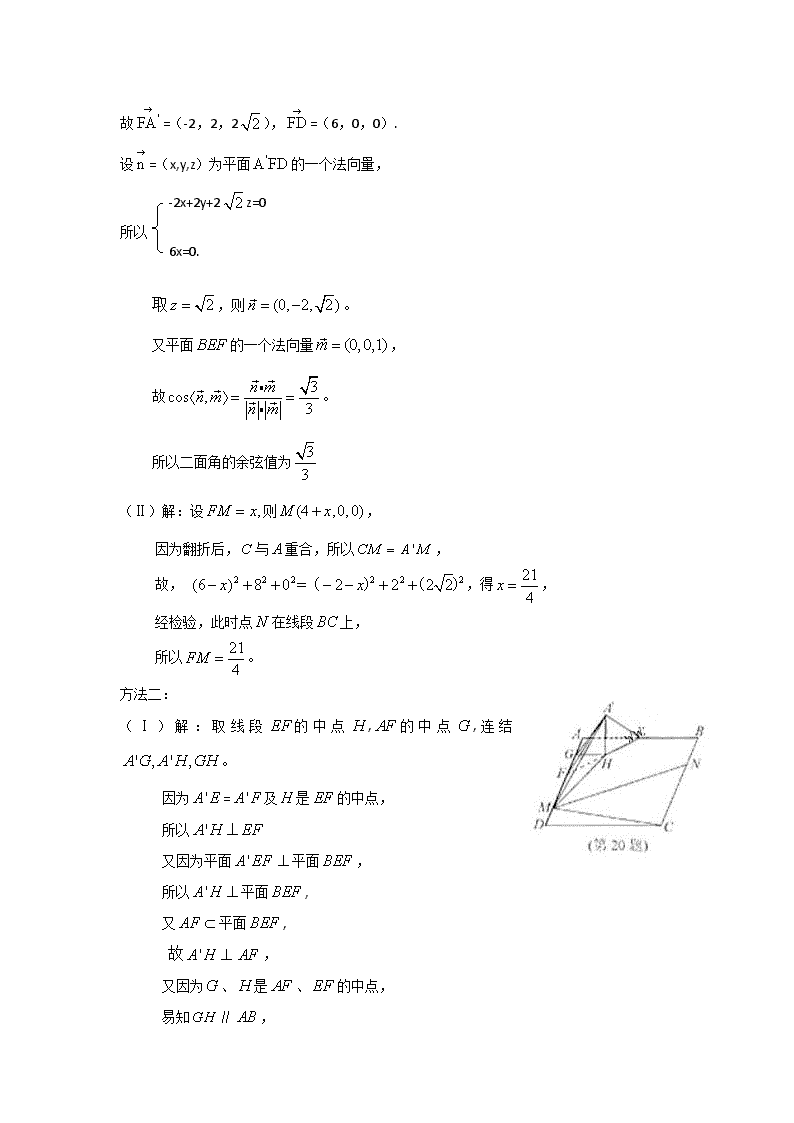 故FA'→=(-2，2，2√2)，FD→=(6，0，0).
设n→=(x,y,z)为平面A'FD的一个法向量，
-2x+2y+2√2z=0
所以{
6x=0.
取z=√2，则n→=(0,-2,√2)。
又平面BEF的一个法向量m→=(0,0,1)，
故cos⟨n→,m→⟩=(n→•m→)/(|n→|•|m→|)=√3/3。
所以二面角的余弦值为√3/3
(Ⅱ)解:设FM=x,则M(4+x,0,0)，
因为翻折后，C与A重合，所以CM=A'M，
故，(6-x)²+8²+0²=(-2-x)²+2²+(2√2)²，得x=21/4，
经检验，此时点N在线段BC上，
所以FM=21/4。
方法二:
(Ⅰ)解:取线段EF的中点H,AF的中点G,连结
A'G,A'H,GH。
因为A'E=A'F及H是EF的中点，
所以A'H⊥EF
又因为平面A'EF⊥平面BEF，
所以A'H⊥平面BEF，
又AF⊂平面BEF，
故A'H⊥AF，
又因为G、H是AF、EF的中点，
易知GH∥AB，
A'
A E B
G
H N
F
M
D C
(第20题)